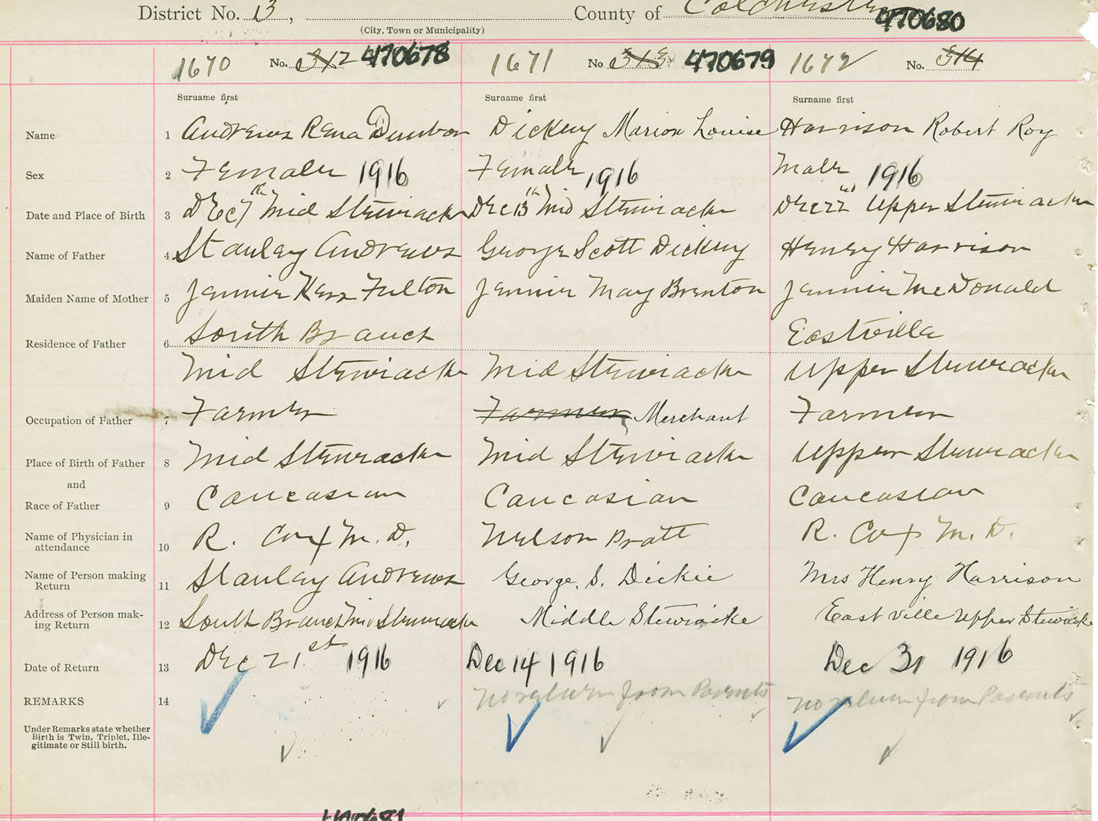 District No. 13, County of Colchester
(City, Town or Municipality) 470680
1670 No. 312 470678 1671 No 313 470679 1672 No. 314
Surname first Surname first Surname first
Name 1 Andrews Rena Dunbar Dickey Marion Louise Harrison Robert Roy
Sex 2 Female 1916 Female 1916 Male 1916
Date and Place of Birth 3 Dec 7th Mid Stewiacke Dec 13th Mid Stewiacke Dec 22nd Upper Stewiacke
Name of Father 4 Stanley Andrews George Scott Dickey Henry Harrison
Maiden Name of Mother 5 Jennie Kerr Fulton Jennie May Brenton Jennie McDonald
South Branch Eastville
Residence of Father 6
Mid Stewiacke Mid Stewiacke Upper Stewiacke
Occupation of Father 7 Farmer Farmer Merchant Farmer
Place of Birth of Father 8 Mid Stewiacke Mid Stewiacke Upper Stewiacke
and
Race of Father 9 Caucasian Caucasian Caucasian
Name of Physician in
attendance 10 R. Cox M.D. Wilson Pratt R. Cox M.D.
Name of Person making
Return 11 Stanley Andrews George S. Dickie Mrs Henry Harrison
Address of Person mak-
ing Return 12 South Branch Mid Stewiacke Middle Stewiacke Eastville Upper Stewiacke
Date of Return 13 Dec 21st 1916 Dec 14 1916 Dec 31 1916
REMARKS 14 No return from Parents No return from Parents
Under Remarks state whether
Birth is Twin, Triplet, Ille-
gitimate or Still birth.
470681